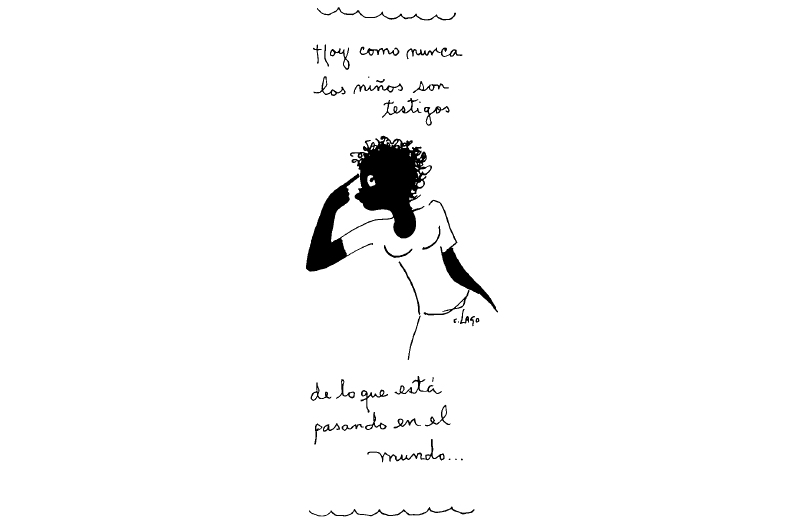 Hoy como nunca
los niños son
testigos
C. LAGO
de lo que está
pasando en el
mundo...